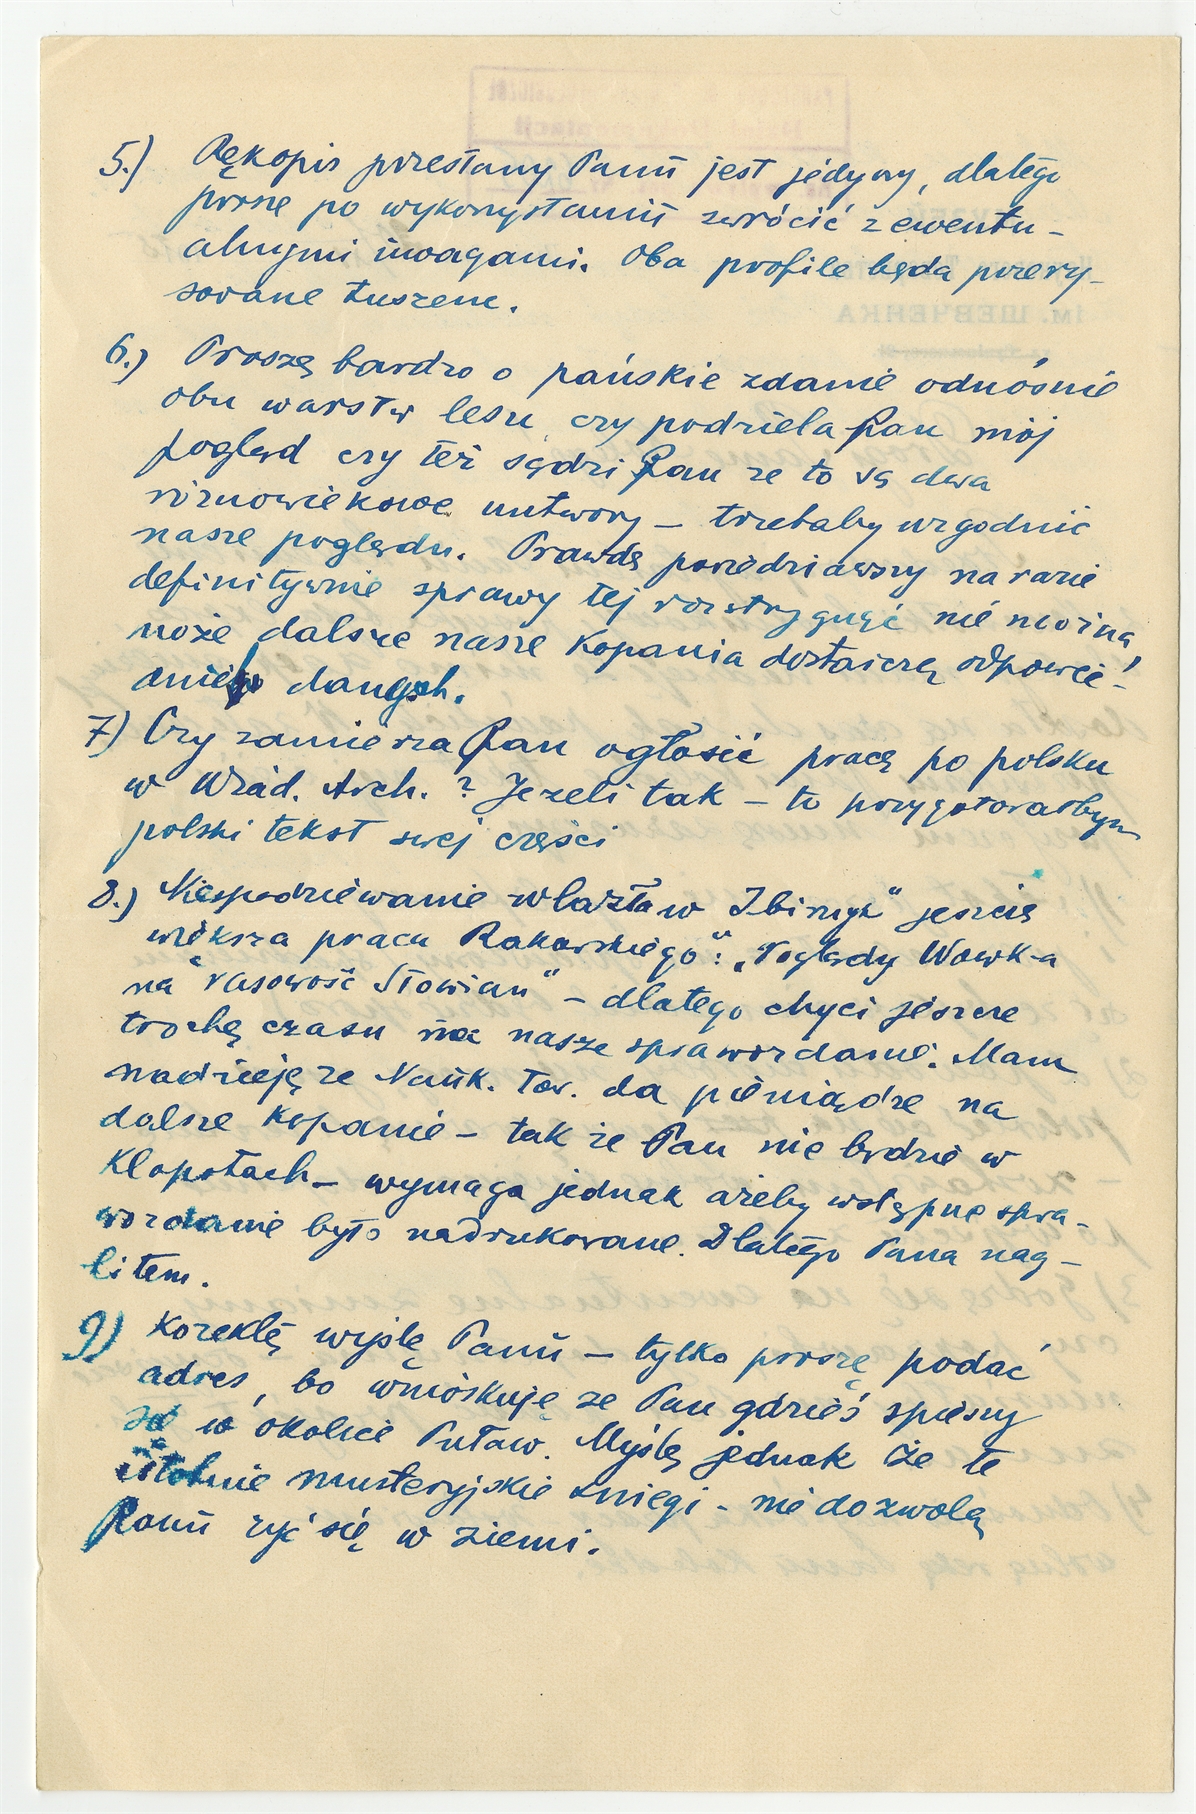 5.) Rękopis przesłany Panu jest jedyny, dlatego
proszę po wykorzystaniu zwrócić z ewentu-
alnymi uwagami. Oba profile będą przery-
sowane tuszem.
6.) Proszę bardzo o pańskie zdanie odnośnie
obu warstw lesu, czy podziela Pan mój
pogląd czy też sądzi Pan że to są dwa
różnowiekowe utwory – trzebaby uzgodnić
nasze poglądu. Prawdę powiedziawszy narazie
definitywnie sprawy tej rozstrzygnąć nie można,
może dalsze nasze kopania dostarczą odpowie-
dnich danych.
7) Czy zamierza Pan ogłosić pracę po polsku
w Wiad. Arch.? Jeżeli tak – to przygotowałbym
polski tekst swej części
8.) Niespodziewanie wlazła w Zbirnyk" jeszcze
większa praca Rakowskiego": „Poglądy Wowk-a
na rasowość Słowian" – dlatego chyci jeszcze
trochę czasu na nasze sprawozdanie. Mam
nadzieję że Nauk. Tow. da pieniądze na
dalsze kopanie – tak że Pan nie będzie w
kłopotach – wymaga jednak ażeby wstępne spra-
wozdanie było nadrukowane. Dlatego Pana nag-
litem.
9) Korektę wyślę Panu – tylko proszę podać
adres, bo wnioskuję że Pan gdzieś spieszy
w okolice Puław. Myślę jednak że te
istotnie śniegi – nie dozwolą
Panu ryć się w ziemi.
ім. ШЕВЧЕНКА